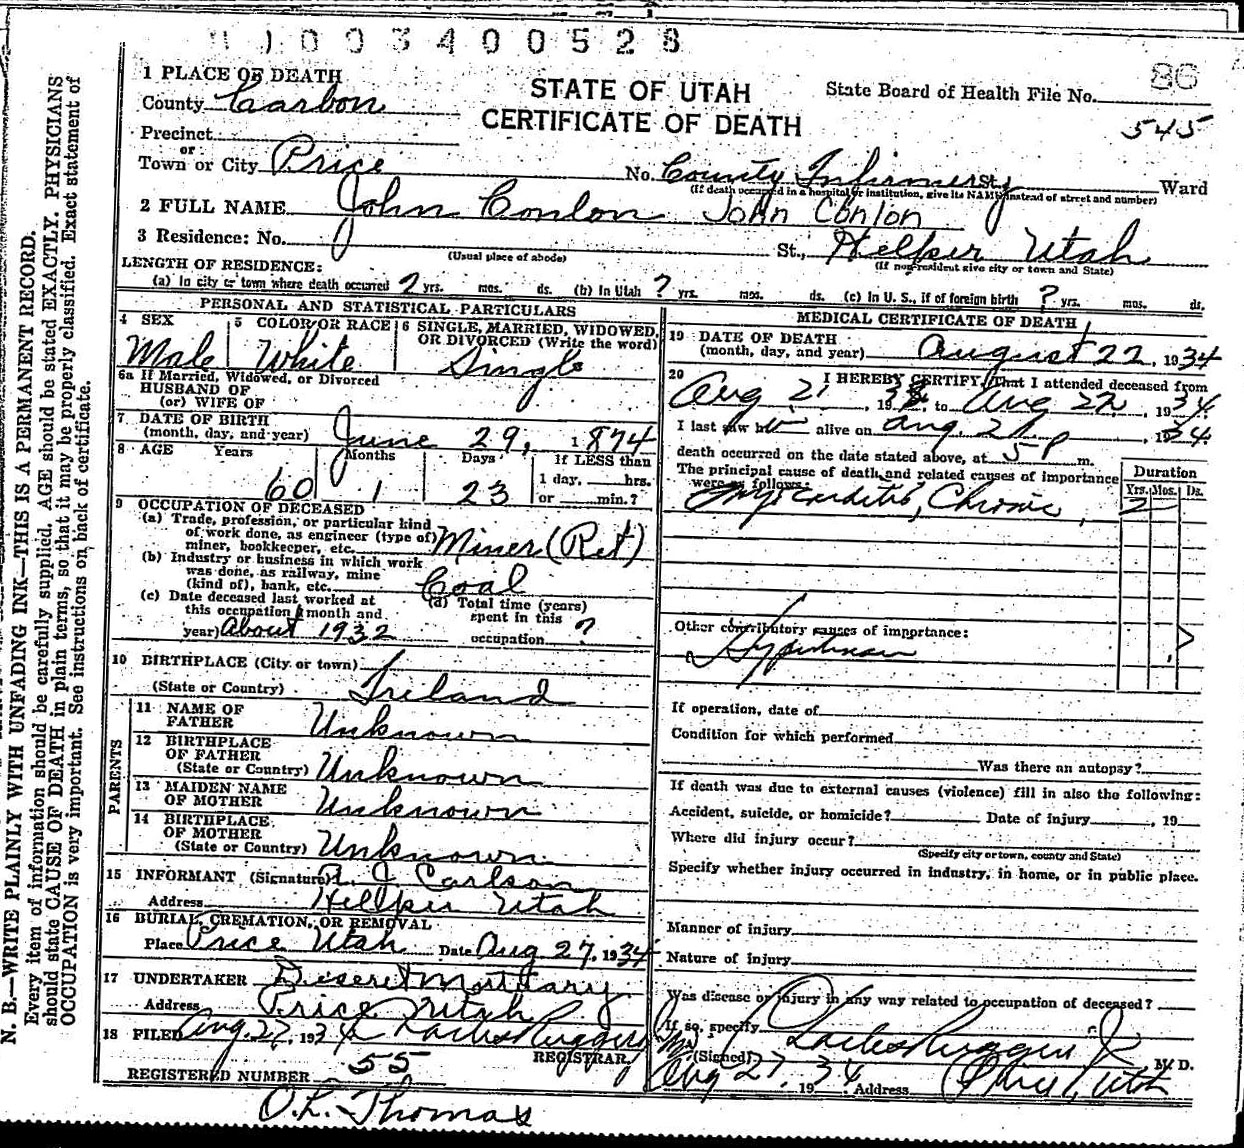 003400528
1 PLACE OF DEATH
STATE OF UTAH
CERTIFICATE OF DEATH
State Board of Health File No. 86
545
County Carbon
Precinct
or
Town or City Price No. County Infirmery St., Ward
(If death occurred in a hospital or institution, give its NAME instead of street and number)
2 FULL NAME John Conlon John Conlon
3 Residence: No. St., Helper Utah
(Usual place of abode) (If non-resident give city or town and State)
LENGTH OF RESIDENCE:
(a) In city or town where death occurred ? yrs. mos. ds. (b) In Utah ? yrs. mos. ds. (c) In U. S., if of foreign birth ? yrs. mos. ds.
PERSONAL AND STATISTICAL PARTICULARS
4 SEX Male
5 COLOR OR RACE White
6 SINGLE, MARRIED, WIDOWED, OR DIVORCED (Write the word) Single
6a If Married, Widowed, or Divorced
HUSBAND OF
(or) WIFE OF
7 DATE OF BIRTH
(month, day, and year) June 29, 1874
8 AGE Years Months Days If LESS than
60 1 23 1 day, hrs.
or min.?
9 OCCUPATION OF DECEASED
(a) Trade, profession, or particular kind
of work done, as engineer (type of)
miner, bookkeeper, etc. Miner (Ret)
(b) Industry or business in which work
was done, as railway, mine
(kind of), bank, etc. Coal
(c) Date deceased last worked at
this occupation (month and
year) About 1932
(d) Total time (years)
spent in this
occupation ?
10 BIRTHPLACE (City or town)
(State or Country) Ireland
PARENTS
11 NAME OF
FATHER Unknown
12 BIRTHPLACE
OF FATHER
(State or Country) Unknown
13 MAIDEN NAME
OF MOTHER Unknown
14 BIRTHPLACE
OF MOTHER
(State or Country) Unknown
15 INFORMANT (Signature) Carlson
Address Helper Utah
16 BURIAL, CREMATION, OR REMOVAL
Place Price Utah Date Aug 27, 1934
17 UNDERTAKER Deseret Mortuary
Address Price Utah
18 FILED Aug. 27, 1934
REGISTRAR
REGISTERED NUMBER 55
O.L. Thomas
MEDICAL CERTIFICATE OF DEATH
19 DATE OF DEATH
(month, day, and year) August 22, 1934
20 I HEREBY CERTIFY, That I attended deceased from
Aug 21, 1934, to Aug 22, 1934
I last saw him alive on Aug. 21, 1934
death occurred on the date stated above, at 5 P m.
The principal cause of death and related causes of importance
were as follows:
Duration
Yrs. Mos. Ds.
Myocarditis, Chronic, 2
Other contributory causes of importance:
Hypertension
If operation, date of
Condition for which performed
Was there an autopsy?
If death was due to external causes (violence) fill in also the following:
Accident, suicide, or homicide? Date of injury , 19
Where did injury occur?
(Specify city or town, county and State)
Specify whether injury occurred in industry, in home, or in public place.
Manner of injury
Nature of injury
Was disease or injury in any way related to occupation of deceased?
If so, specify
(Signed) Charles Ruggeri Jr M. D.
Aug 27, 1934 Address Price, Utah
N. B.—WRITE PLAINLY WITH UNFADING INK—THIS IS A PERMANENT RECORD.
Every item of information should be carefully supplied. AGE should be stated EXACTLY. PHYSICIANS
should state CAUSE OF DEATH in plain terms, so that it may be properly classified. Exact statement of
OCCUPATION is very important. See instructions on back of certificate.